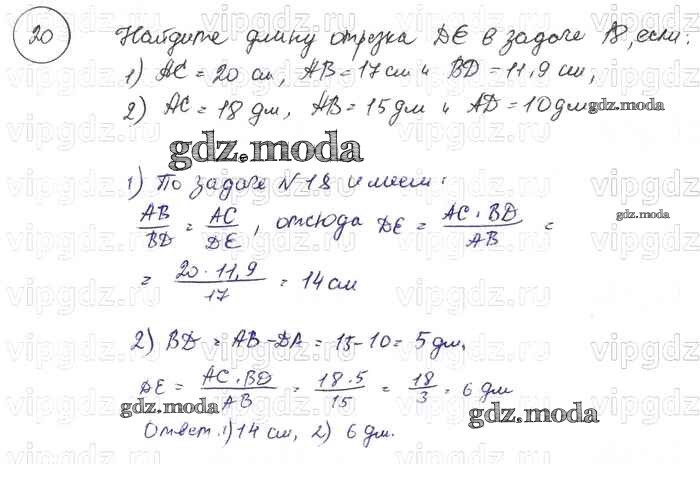 20 Найдите длину отрезка DE в задаче 18, если:
1) AC = 20 см, AB = 17 см и BD = 11,9 см,
2) AC = 18 дм, AB = 15 дм и AD = 10 дм
gdz.moda
gdz.moda
1) По задаче N 18 имеем:
AB/BD = AC/DE, отсюда DE = AC·BD/AB =
gdz.moda
= 20·11,9/17 = 14 см
2) BD = AB - DA = 15-10 = 5 дм,
DE = AC·BD/AB = 18·5/15 = 18/3 = 6 дм
gdz.moda
gdz.moda
Ответ: 1) 14 см, 2) 6 дм.
vipgdz.com